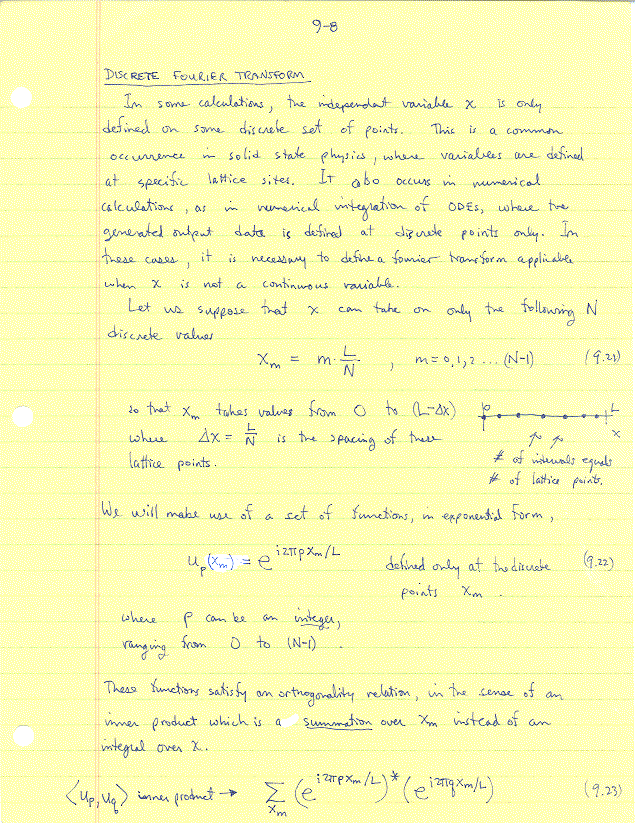 9-8
DISCRETE FOURIER TRANSFORM
In some calculations, the independent variable x is only
defined on some discrete set of points. This is a common
occurrence in solid state physics, where variables are defined
at specific lattice sites. It also occurs in numerical
calculations, as in numerical integration of ODEs, where the
generated output data is defined at discrete points only. In
these cases, it is necessary to define a fourier transform applicable
when x is not a continuous variable.
Let us suppose that x can take on only the following N
discrete values
x_m = m · L/N , m = 0, 1, 2 ... (N-1) (9.21)
so that x_m takes values from 0 to (L-Δx)
where Δx = L/N is the spacing of these
lattice points.
0 L
x
# of intervals equals
# of lattice points.
We will make use of a set of functions, in exponential form,
u_p(x_m) = e^{i2πpx_m/L} defined only at the discrete (9.22)
points x_m .
where p can be an integer,
ranging from 0 to (N-1) .
These functions satisfy an orthogonality relation, in the sense of an
inner product which is a summation over x_m instead of an
integral over x.
⟨u_p, u_q⟩ inner product → Σ_{x_m} (e^{i2πpx_m/L})* (e^{i2πqx_m/L}) (9.23)